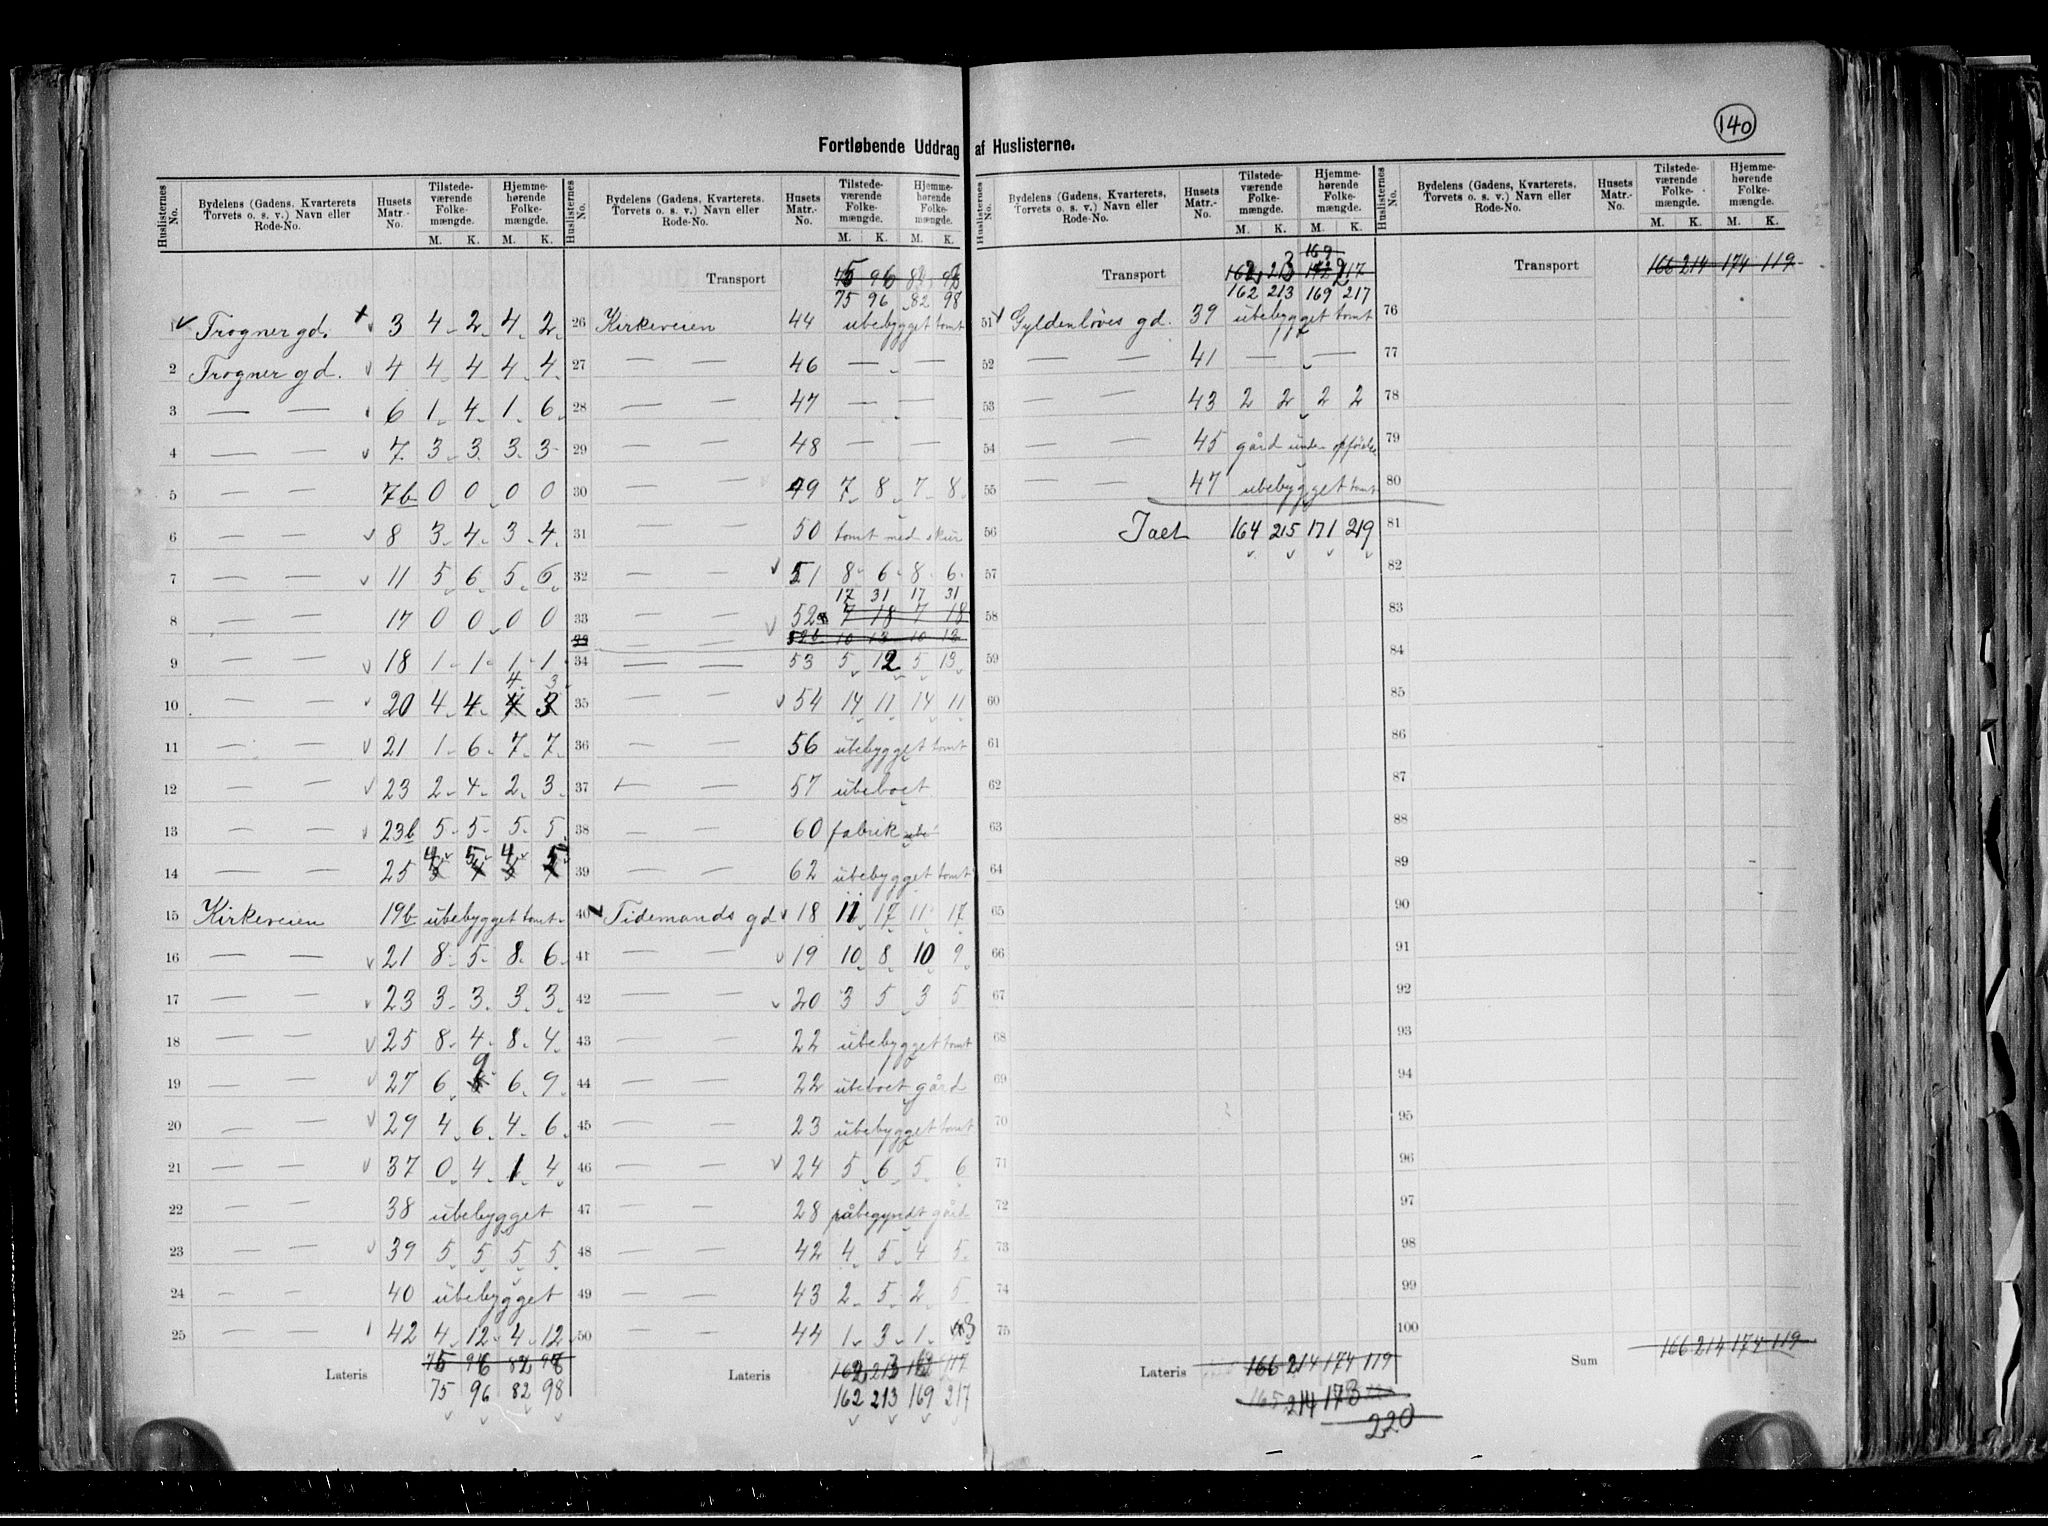 140
Fortløbende Uddrag af Huslisterne.
Huslisternes No. | Bydelens (Gadens, Kvarterets Torvets o. s. v.) Navn eller Rode-No. | Husets Matr.-No. | Tilstedeværende Folkemængde. M. K. | Hjemmehørende Folkemængde. M. K.
1 Frogner gd. 3 4 2 4 2
2 Frogner gd. 4 4 4 4 4
3 — — 6 1 4 1 6
4 — — 7 3 3 3 3
5 — — 7b 0 0 0 0
6 — — 8 3 4 3 4
7 — — 11 5 6 5 6
8 — — 17 0 0 0 0
9 — — 18 1 1 1 1
4 3
10 — — 20 4 4
11 — — 21 1 6 7 7
12 — — 23 2 4 2 3
13 — — 23b 5 5 5 5
4 5 4 5
14 — — 25
15 Kirkeveien 19b ubebygget tomt
16 — — 21 8 5 8 6
17 — — 23 3 3 3 3
18 — — 25 8 4 8 4
19 — — 27 6 9 6 9
20 — — 29 4 6 4 6
21 — — 37 0 4 1 4
22 — — 38 ubebygget
23 — — 39 5 5 5 5
24 — — 40 ubebygget
25 — — 42 4 12 4 12
Lateris 75 96 82 98
75 96 82 98
Huslisternes No. | Bydelens (Gadens, Kvarterets. Torvets o. s. v.) Navn eller Rode-No. | Husets Matr.-No. | Tilstedeværende Folkemængde. M. K. | Hjemmehørende Folkemængde. M. K.
Transport
75 96 82 98
26 Kirkeveien 44 ubebygget tomt
27 — — 46 — —
28 — — 47 — —
29 — — 48 — —
30 — — 49 7 8 7 8
31 — — 50 tomt med skur
32 — — 51 8 6 8 6
17 31 17 31
33 — — 52 7 18 7 18
33 52b 10 13 10 13
34 — — 53 5 12 5 13
35 — — 54 14 11 14 11
36 — — 56 ubebygget tomt
37 — — 57 ubeboet
38 — — 60 fabrik ube
39 — — 62 ubebygget tomt
40 Tidemands gd 18 11 17 11 17
41 — — 19 10 8 10 9
42 — — 20 3 5 3 5
43 — — 22 ubebygget tomt
44 — — 22 ubeboet gård
45 — — 23 ubebygget tomt
46 — — 24 5 6 5 6
47 — — 28 påbegyndt gård
48 — — 42 4 5 4 5
49 — — 43 2 5 2 5
50 — — 44 1 3 1 3
Lateris
162 213 169 217
Huslisternes No. | Bydelens (Gadens, Kvarterets, Torvets o. s. v.) Navn eller Rode-No. | Husets Matr.-No. | Tilstedeværende Folkemængde. M. K. | Hjemmehørende Folkemængde. M. K.
169
Transport 162 213 217
162 213 169 217
51 Gyldenløves gd. 39 ubebygget tomt
52 — — 41 — —
53 — — 43 2 2 2 2
54 — — 45 gård under opførelse
55 — — 47 ubebygget tomt
56 Ialt 164 215 171 219
57
58
59
60
61
62
63
64
65
66
67
68
69
70
71
72
73
74
75
Lateris 166 214 174 119
165 214 173
220
Huslisternes No. | Bydelens (Gadens, Kvarterets, Torvets o. s. v.) Navn eller Rode-No. | Husets Matr.-No. | Tilstedeværende Folkemængde. M. K. | Hjemmehørende Folkemængde. M. K.
Transport 166 214 174 119
76
77
78
79
80
81
82
83
84
85
86
87
88
89
90
91
92
93
94
95
96
97
98
99
100
Sum 166 214 174 119